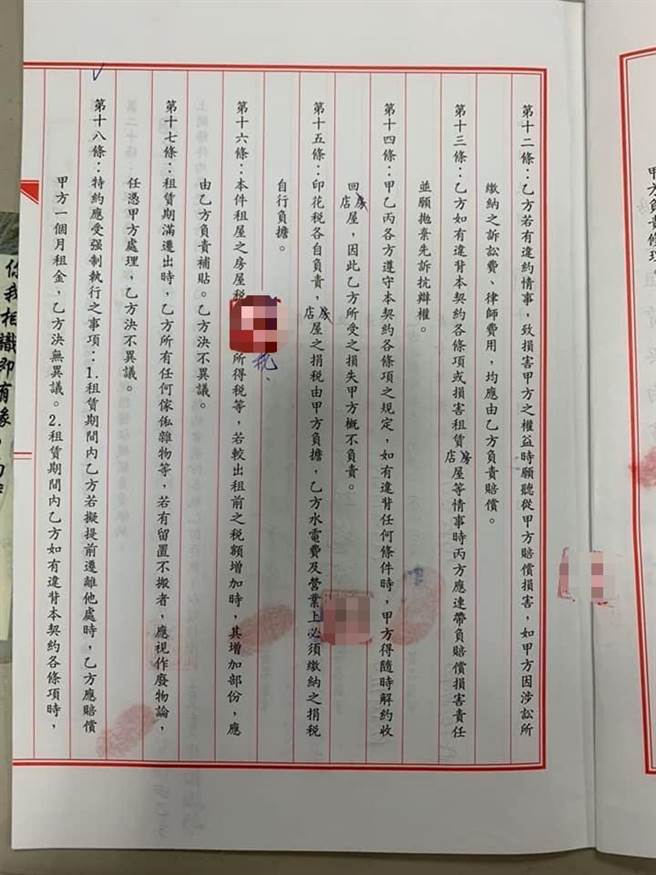 第十二條：乙方若有違約情事，致損害甲方之權益時願聽從甲方賠償損害，如甲方因涉訟所
繳納之訴訟費、律師費用，均應由乙方負責賠償。
第十三條：乙方如有違背本契約各條項或損害租賃店房屋等情事時丙方應連帶負賠償損害責任
並願拋棄先訴抗辯權。
第十四條：甲乙丙各方遵守本契約各條項之規定，如有違背任何條件時，甲方得隨時解約收
回店房屋，因此乙方所受之損失甲方概不負責。
第十五條：印花稅各自負責，店房屋之捐稅由甲方負擔，乙方水電費及營業上必須繳納之捐稅
自行負擔。
第十六條：本件租屋之房屋稅 所得稅等，若較出租前之稅額增加時，其增加部份，應
由乙方負責補貼。乙方決不異議。
第十七條：租賃期滿遷出時，乙方所有任何傢俬雜物等，若有留置不搬者，應視作廢物論，
任憑甲方處理，乙方決不異議。
第十八條：特約應受強制執行之事項：1.租賃期間內乙方若擬提前遷離他處時，乙方應賠償
甲方一個月租金，乙方決無異議。2.租賃期間內乙方如有違背本契約各條項時，
甲方負責修理。
你我相識即有緣